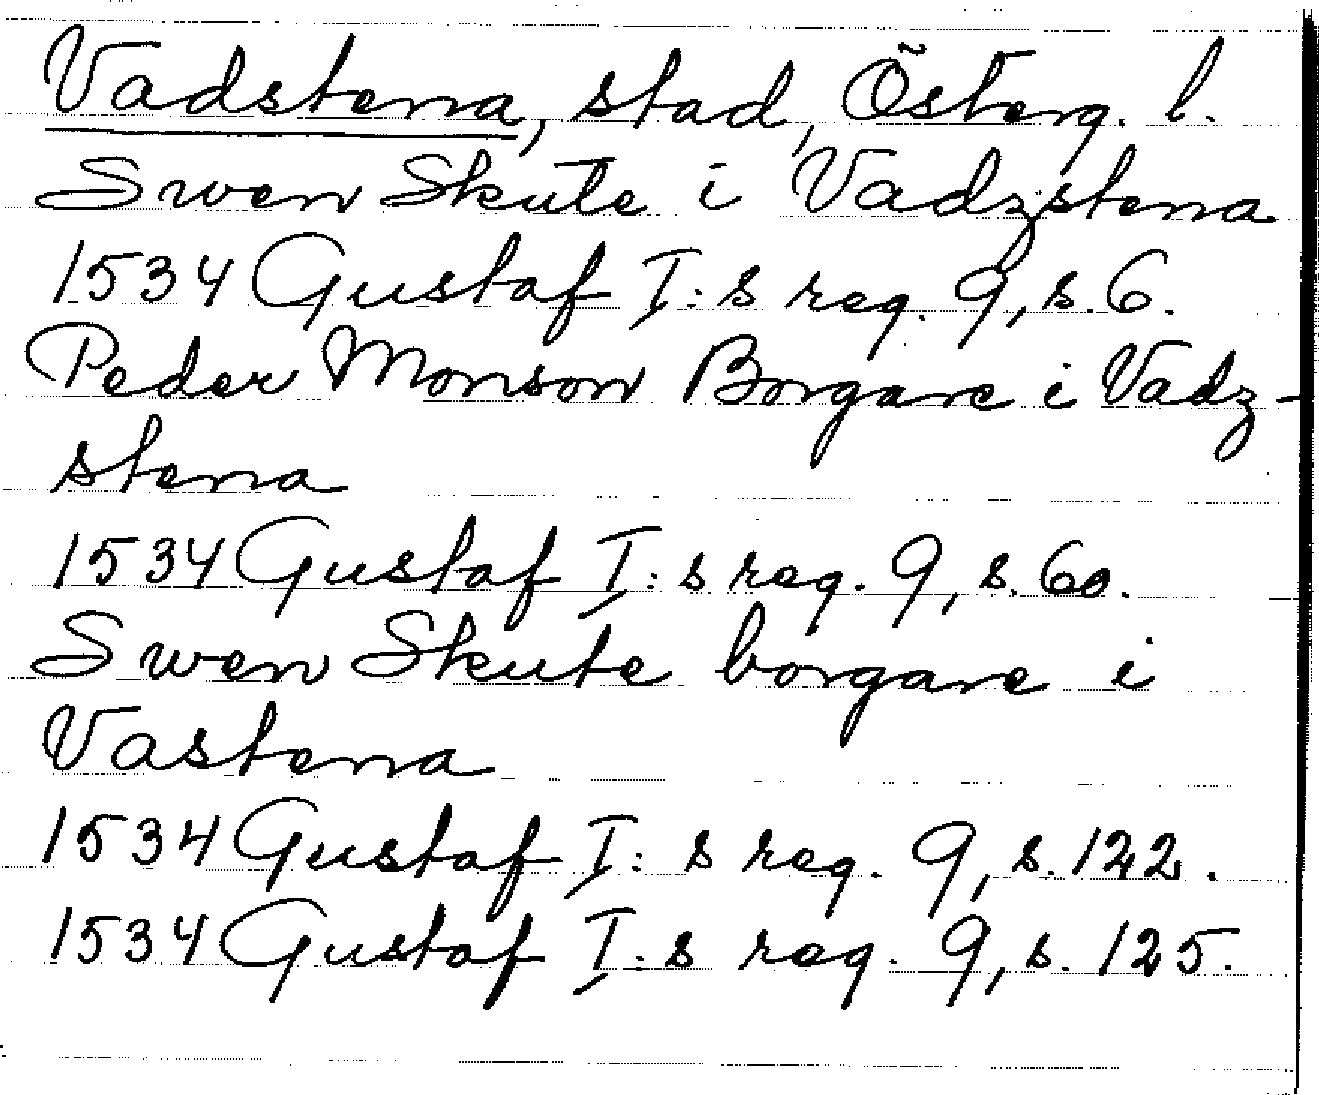 Vadstena, stad, Österg. l.
Swen Skute i Vadzstena
1534 Gustaf I:s reg. 9, s. 6.
Peder Monson Borgare i Vadz-
stena
1534 Gustaf I:s reg. 9, s. 60.
Swen Skute borgare i
Vastena
1534 Gustaf I:s reg. 9, s. 122.
1534 Gustaf I:s reg. 9, s. 125.